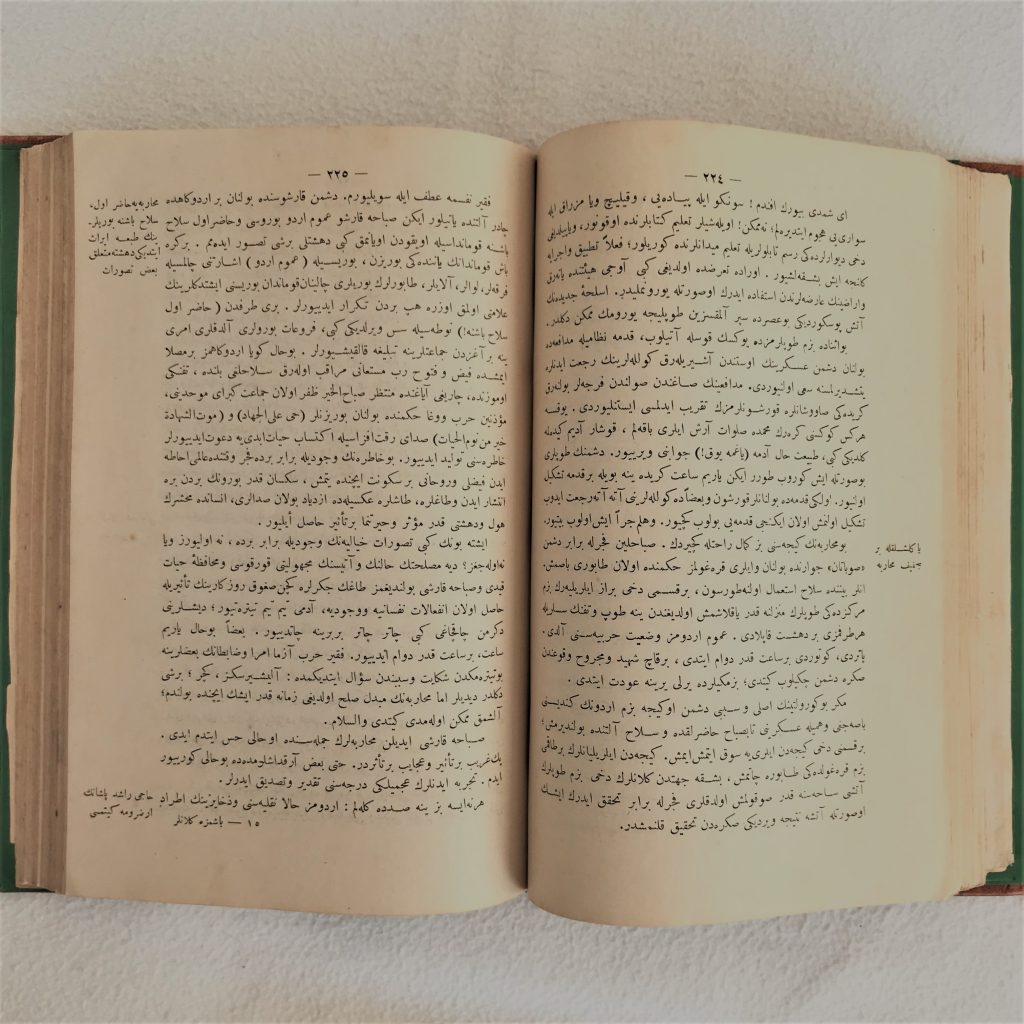 — ٢٢٤ —
ای شمدی بیورك افندم ! سونكو ایله پیاده‌یی ، وقیلیچ ویا مزراق ایله
سواری‌یی هجوم ایتدیره‌لم؛ نه‌ممكن! اویله‌شیلر تعلیم كتابلرنده اوقونور،
دخی دیوارلرده‌كی رسم تابلولریله تعلیم میدانلرنده كوریلور؛ فعلاً تطبیق واجرایه
كلنجه ایش بشقه‌لشیور . اوراده تعرضده اولدیغی كبی آوجی هیئتنده یاته‌رق
واراضینك عارضه‌لرندن استفاده ایدرك اوصورتله یورونملیدر. اسلحهٔ جدیده‌نك
آتش پوسكوردیكی بوعصرده سپر آلمقسزین طوپلیجه یورومك ممكن دكلدر.
بواثناده بزم طوپلرمزده یوكسك قوسله آتیلوب، قدمه نظامیله مدافعه‌ده
بولنان دشمن عسكرینك اوستندن آشیریله‌رق كولله‌لرینك رجعت ایدنلره
یتشدیرلمسنه سعی اولنیوردی. مدافعینك صاغندن صولندن فرجه‌لر بولنه‌رق
كریده‌كی صاووشانلره قورشونلرمزك تقریب ایدلمسی ایستنلیوردی . یوقسه
هركس كوكسی كره‌رك محمده صلوات آرش ایلری باقه‌لم ، قوشار آدیم كیده‌لم
كلدیكی كبی، طبیعت حال آدمه (یاغمه یوق!) جوابنی ویرییور. دشمنك طوپلری
بوصورتله ایش كوروب طورر ایكن یاریم ساعت كریده ینه بویله برقدمه تشكیل
اولنیور. اولكی قدمه‌ده بولنانلر قورشون وبعضاًده كولله‌لرینی آته آته رجعت ایدوب
تشكیل اولنمش اولان ایكنجی قدمه‌یی بولوب كچیور. وهلم‌جراً ایش اولوب بیتیور.
بومحاربه‌نك كیجه‌سنی بز كمال راحتله كچیردك . صباحلین فجرله برابر دشمن
«صوباتان» جوارنده بولنان وایلری قره‌غولمز حكمنده اولان طابوری باصمش.
انلر بیننده سلاح استعمال اولنه‌طورسون، برقسمی دخی براز ایلریلیه‌رك بزم
مركزده‌كی طوپلرك منزلنه قدر یاقلاشمش اولدیغندن ینه طوپ وتفنك سسلریله
هرطرفمزی بردهشت قاپلادی . عموم اردومز وضعیت حربیه‌سنی آلدی .
یاتردی، كونوردی برساعت قدر دوام ایتدی ، برقاچ شهید ومجروح وقوعندن
صكره دشمن چكیلوب كیتدی؛ بزمكیلرده یرلی یرینه عودت ایتدی .
مكر بوكورولتینك اصلی و سببی دشمن اوكیجه بزم اردونك كندیسنی
باصه‌جغنی وهمیله عسكرینی تابصباح حاضرلقده و سلاح آلتنده بولندیرمش؛
برقسمنی دخی كیجه‌دن ایلری‌یه سوق ایتمش‌ایمش. كیجه‌دن ایلریلیانلرك برطاقی
بزم قره‌غولده‌كی طابوره چاتمش ، بشقه جهتدن كلانلرك دخی بزم طوپلرك
آتشی ساحه‌سنه قدر صوقولمش اولدقلری فجرله برابر تحقق ایدرك ایشك
اوصورتله آتشه نتیجه ویردیكی صكره‌دن تحقیق قلنمشدر.
یاكلشلقله بر
خفیف محاربه
— ٢٢٥ —
فقیر نفسمه عطف ایله سویلیورم. دشمن قارشوسنده بولنان بر اردوكاهده
چادر آلتنده یاتیلور ایكن صباحه قارشو عموم اردو بوروسی وحاضراول سلاح
باشنه قومانداسیله اویقودن اویانمق كبی دهشتلی برشی تصور ایده‌مم . بركره
باش قوماندانك یاننده‌كی بوریزن ، بوریسیله ( عموم اردو ) اشارتنی چالمسیله
فرقه‌لر، لوالر، آلایلر، طابورلرك بوریلری چالینان‌قوماندان بوریسنی ایشتدكارینك
علامتی اولمق اوزره هپ بردن تكرار ایدییورلر . بری طرفدن ( حاضر اول
سلاح باشنه!) نوطه‌سیله سس ویرلدیكی كبی، فروعات بورولری آلدقلری امری
ینه بر آغزدن جماعتلرینه تبلیغه قالقیشیورلر . بوحال كویا اردوكاهمز برمصلا
ایمشده فیض و فتوح رب مستعانی مراقب اوله‌رق سلاحلغی بلنده ، تفنكی
اوموزنده، چاریغی آیاغنده منتظر صباح‌الخیر ظفر اولان جماعت كبرای موحدینی،
مؤذنین حرب ووغا حكمنده بولنان بوریزنلر (حی علی‌الجهاد) و (موت‌الشهادة
خیر من نوم‌الحیات) صدای رقت‌افزاسیله اكتساب حیات‌ابدی‌یه دعوت‌ایدییورلر
خاطره‌سنی تولید ایدییور. بوخاطره‌نك وجودیله برابر برده‌فجر وقتنده‌عالمی‌احاطه
ایدن فیضلی وروحانی بر سكونت ایچنده یتمش ، سكسان قدر بورونك بردن بره
انتشار ایدن وطاغلره، طاشلره عكسیله‌ده ازدیاد بولان صدالری، انسانده محشرك
هول ودهشتی قدر مؤثر وحیرتنما برتأثیر حاصل أیلیور .
ایشته بونك كبی تصورات خیالیه‌نك وجودیله برابر برده ، نه اولیورز ویا
نه‌اوله‌جغز؟ دیه مصلحتك حالنك وآتیسنك مجهولیتی قورقوسی ومحافظهٔ حیات
قیدی وصباحه قارشی بولندیغمز طاغك جكرلره كچن صغوق روزكارینك تأثیریله
حاصل اولان انفعالات نفسانیه ووجودیه، آدمی تیم تیم تیتره‌تیور؛ دیشلرینی
دكرمن چاقجاغی كبی چاتر چاتر بربرینه چاتدییور . بعضاً بوحال یاریم
ساعت، برساعت قدر دوام ایدییور. فقیر حرب آزما امرا وضابطانك بعضلرینه
بوتیتره‌مكدن شكایت وسببندن سؤال ایتدیكمده : آلیشیرسكز، كچر ؛ برشی
دكلدر دیدیلر اما محاربه‌نك مبدل صلح اولدیغی زمانه قدر ایشك ایچنده بولندم؛
آلشمق ممكن اوله‌مدی كیتدی والسلام .
صباحه قارشی ایدیلن محاربه‌لرك جمله‌سنده اوحالی حس ایتدم ایدی .
پك‌غریب برتأثیر وعجایب برتأثردر. حتی بعض آرقداشلرمده‌ده بوحالی كورییور
ایدم . تجربه ایدنلرك عجمیلكی درجه‌سنی تقدیر وتصدیق ایدرلر .
هرنه‌ایسه بز ینه صدده كله‌لم: اردومز حالا نقلیه‌سنی وذخایرینك اطراد
١٥ — باشمزه كلانلر
محاربه‌یه‌حاضر اول،
سلاح باشنه بوریلر-
ینك طبعه ایراث
ایتدیكی‌دهشته‌متعلق
بعض تصورات
حاجی راشد پاشانك
ارضرومه كیتمسی